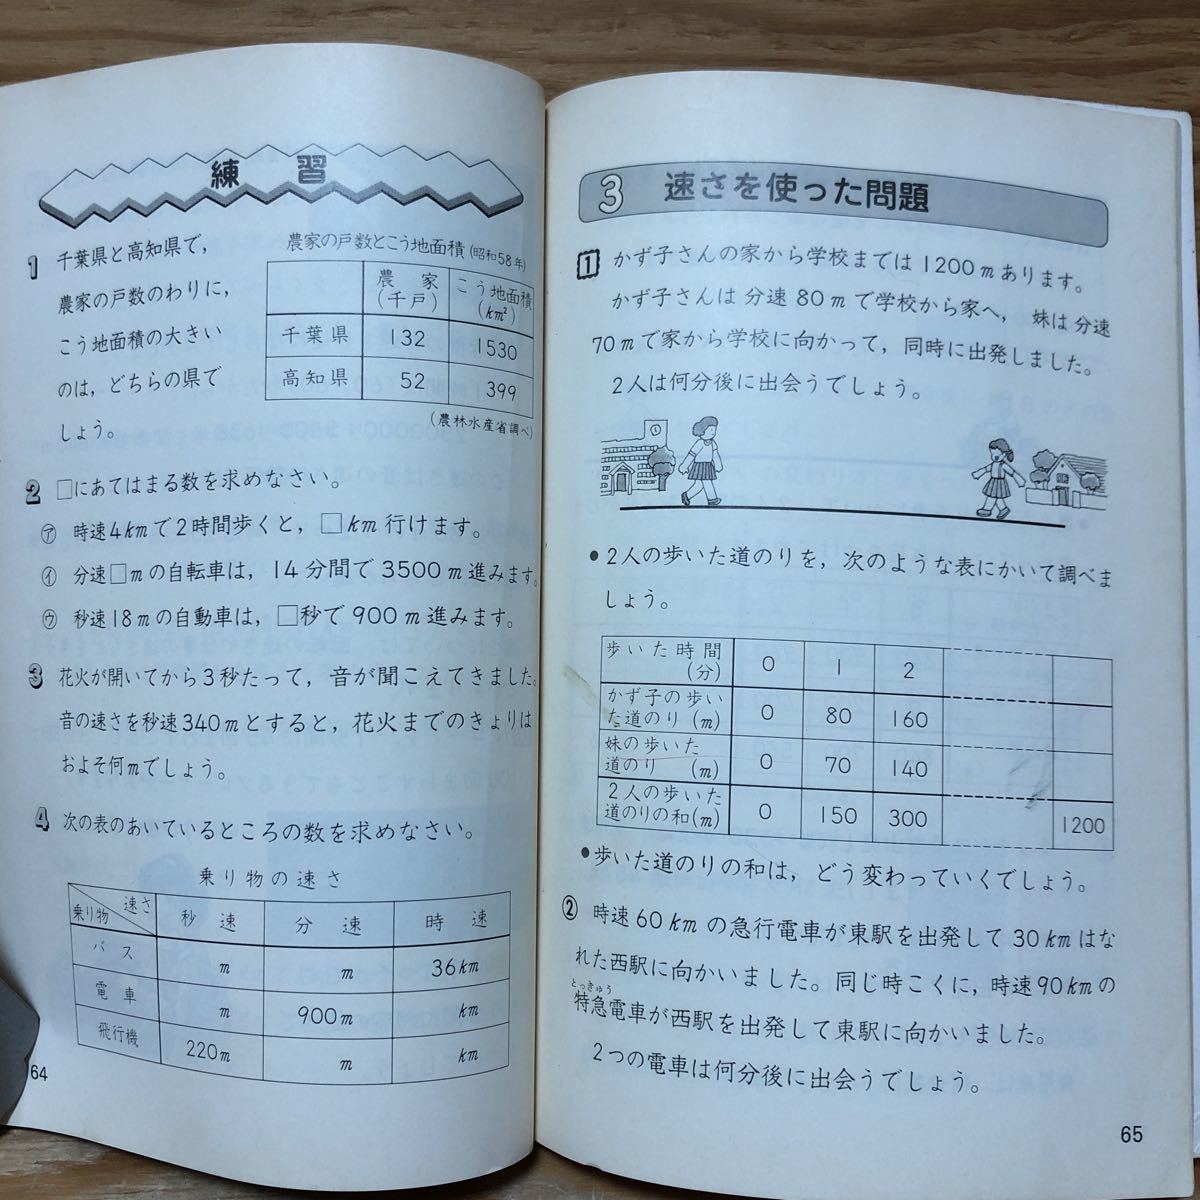 練習
1 千葉県と高知県で,
農家の戸数のわりに,
こう地面積の大きい
のは, どちらの県で
しょう。
農家の戸数とこう地面積(昭和58年)
農家(千戸) こう地面積(km²)
千葉県 132 1530
高知県 52 399
(農林水産省調べ)
2 □にあてはまる数を求めなさい。
㋐ 時速4kmで2時間歩くと, □km行けます。
㋑ 分速□mの自転車は, 14分間で3500m進みます。
㋒ 秒速18mの自動車は, □秒で900m進みます。
3 花火が開いてから3秒たって, 音が聞こえてきました。
音の速さを秒速340mとすると, 花火までのきょりは
およそ何mでしょう。
4 次の表のあいているところの数を求めなさい。
乗り物の速さ
乗り物 速さ 秒速 分速 時速
バス m m 36km
電車 m 900m km
飛行機 220m m km
64
3 速さを使った問題
1 かず子さんの家から学校までは1200mあります。
かず子さんは分速80mで学校から家へ, 妹は分速
70mで家から学校に向かって, 同時に出発しました。
2人は何分後に出会うでしょう。
●2人の歩いた道のりを, 次のような表にかいて調べま
しょう。
歩いた時間(分) 0 1 2
かず子の歩いた道のり(m) 0 80 160
妹の歩いた道のり(m) 0 70 140
2人の歩いた道のりの和(m) 0 150 300 1200
●歩いた道のりの和は, どう変わっていくでしょう。
② 時速60kmの急行電車が東駅を出発して30kmはな
れた西駅に向かいました。同じ時こくに, 時速90kmの
とっきゅう
特急電車が西駅を出発して東駅に向かいました。
2つの電車は何分後に出会うでしょう。
65